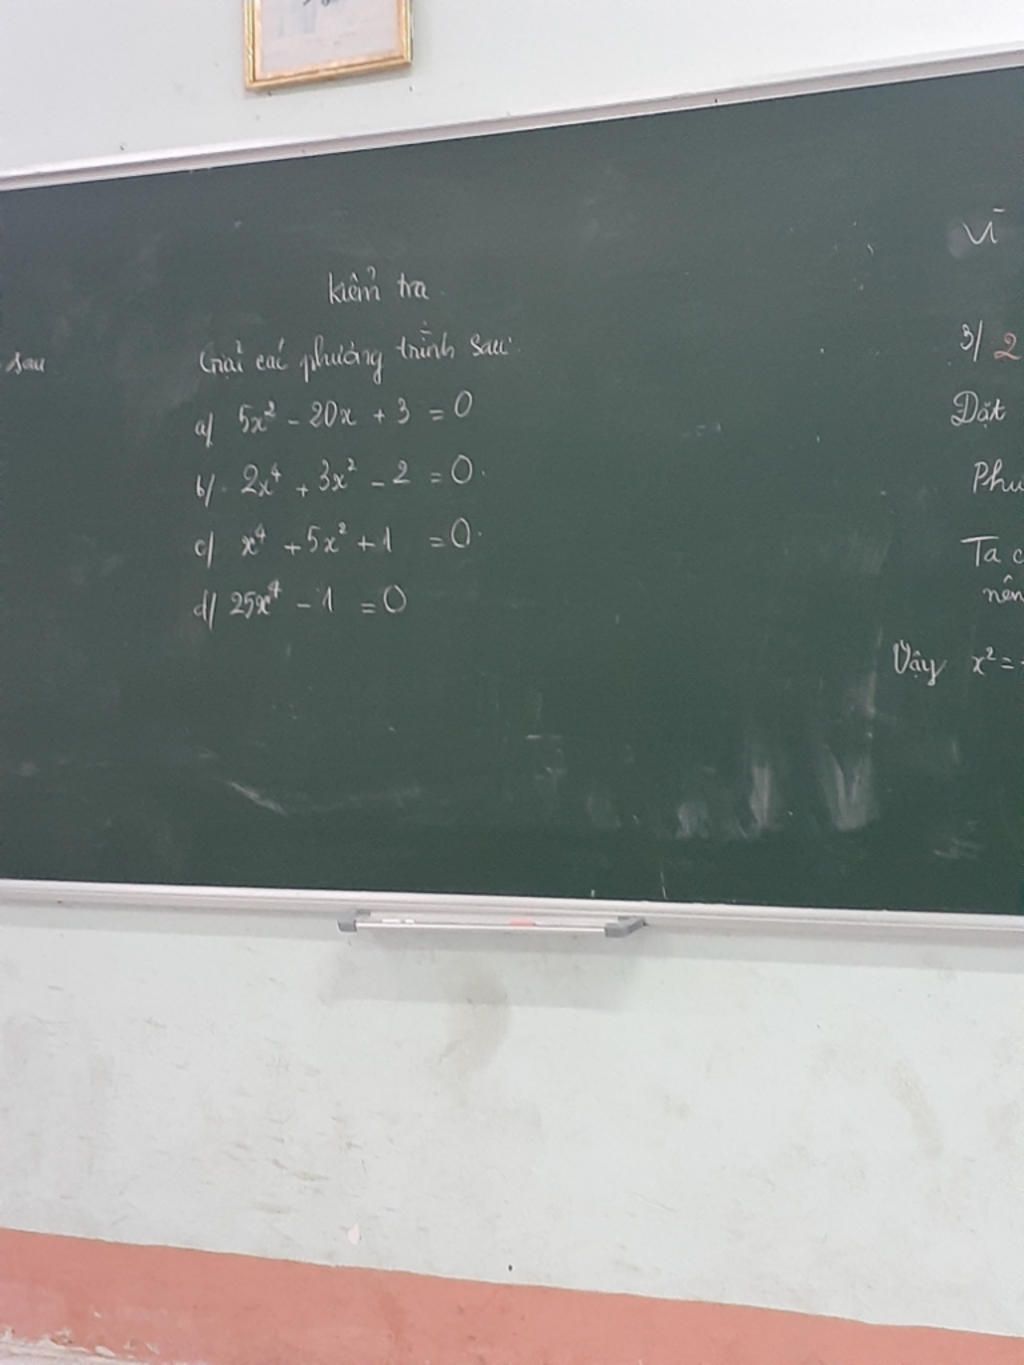 sau
kiểm tra
Giải các phương trình sau:
a/ 5x² - 20x + 3 = 0
b/. 2x⁴ + 3x² - 2 = 0.
c/ x⁴ + 5x² + 1 = 0.
d/ 25x⁴ - 1 = 0
Vì
3/ 2
Đặt
Phư
Ta c
nên
Vậy x² =